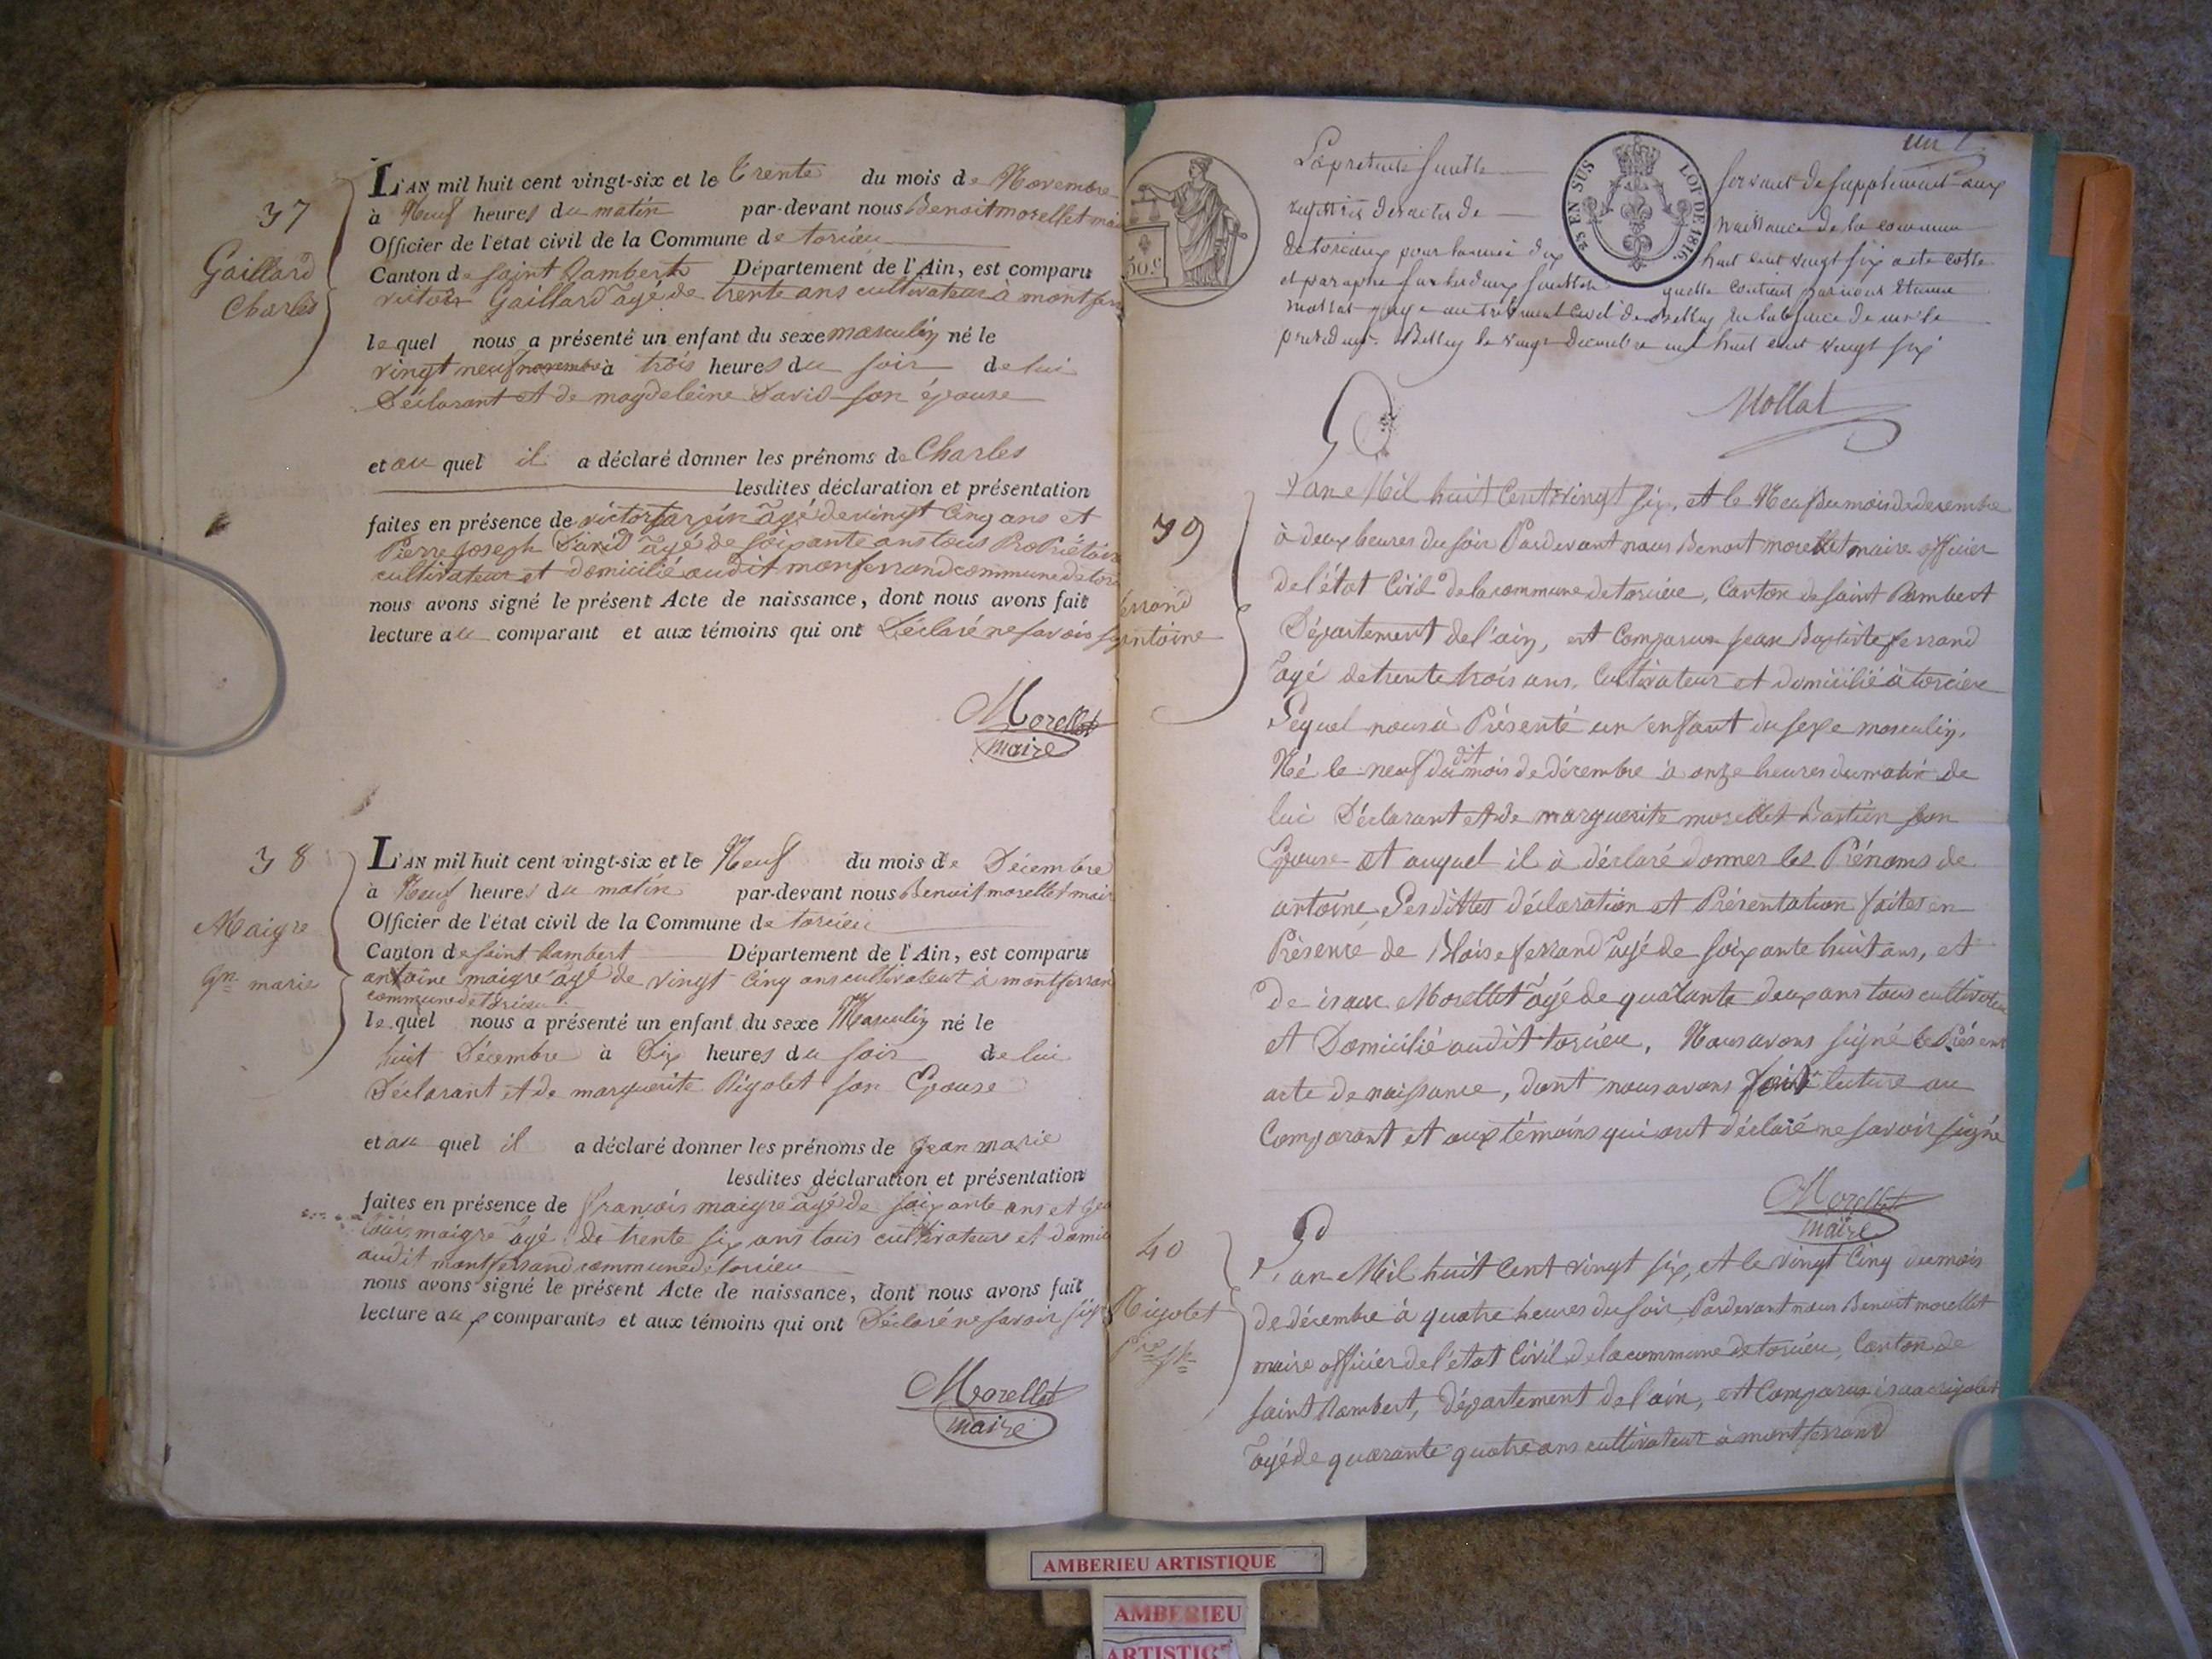 37
Gaillard
Charles
L'AN mil huit cent vingt-six et le trente du mois de Novembre
à Neuf heures du matin par-devant nous Benoit morellet mai
Officier de l'état civil de la Commune de torcieu
Canton de saint Rambert Département de l'Ain, est comparu
victor Gaillard agé de trente ans cultivateur à montferr
lequel nous a présenté un enfant du sexe masculin né le
vingt neuf novembre à trois heures du soir de lui
Déclarant et de magdeleine David son épouse
et au quel il a déclaré donner les prénoms de Charles
lesdites déclaration et présentation
faites en présence de victor agé de vingt Cinq ans et
Pierre Joseph David agé de soixante ans tous Propriétaire
cultivateur et domicilié audit monferrand commune de torc
nous avons signé le présent Acte de naissance, dont nous avons fait
lecture au comparant et aux témoins qui ont Déclaré ne savoir
Morellet
maire
38
Maigre
Jn marie
L'AN mil huit cent vingt-six et le Neuf du mois de Décembre
à Neuf heures du matin par-devant nous Benoit morellet mair
Officier de l'état civil de la Commune de torcieu
Canton de saint Rambert Département de l'Ain, est comparu
antoine maigre agé de vingt Cinq ans cultivateur à montferran
commune de torcieu
lequel nous a présenté un enfant du sexe Masculin né le
huit Décembre à Dix heures du soir de lui
Déclarant et de marguerite Rigolet son Epouse
et au quel il a déclaré donner les prénoms de jean marie
lesdites déclaration et présentation
faites en présence de françois maigre agé de soixante ans et
Louis maigre agé de trente six ans tous cultivateurs et domici
audit montferrand commune de torcieu
nous avons signé le présent Acte de naissance, dont nous avons fait
lecture aux comparants et aux témoins qui ont Déclaré ne savoir sig
Morellet
maire
50.c
25 EN SUS
LOI DE 1816.
un
La présente feuille servant de supplément aux
registres des actes de naissance de la commune
de torcieux pour l'année dix huit cent vingt six a été cotté
et paraphé sur les deux feuillets quelle contient par nous Etienne
Mollat juge au tribunal civil de Belley en l'absence de mr le
president. Belley le vingt Decembre mil huit cent vingt six
Mollat
39
ferrand
antoine
L'an Mil huit Cent vingt six, et le Neuf du mois de decembre
à deux heures du soir Pardevant nous Benoit morellet maire officier
de l'état Civil de la commune de torcieu, Canton de saint Rambert
Département de l'ain, est Comparu jean Baptiste ferrand
agé de trente trois ans, Cultivateur et domicilié à torcieu
Lequel nous à Présenté un enfant du sexe masculin,
Né le neuf du dit mois de décembre à onze heures du matin de
lui Déclarant et de marguerite morellet Bastien son
Epouse et auquel il à déclaré donner les Prénoms de
antoine, Les dittes déclaration et Présentation faites en
Présence de Blaise ferrand agé de soixante huit ans, et
de isaac Morellet agé de quarante deux ans tous cultivateur
et Domicilié audit torcieu, Nous avons signé le Présent
acte de naissance, dont nous avons fait lecture au
Comparant et aux témoins qui ont déclaré ne savoir signé
Morellet
maire
40
Rigolet
L'an Mil huit Cent vingt six, et le vingt Cinq du mois
de décembre à quatre heures du soir, Pardevant nous Benoit morellet
maire officier de l'état Civil de la commune de torcieu, Canton de
saint Rambert, département de l'ain, est Comparu isaac rigolet
agé de quarante quatre ans cultivateur à montferrand
AMBERIEU ARTISTIQUE
AMBERIEU
ARTISTIQ